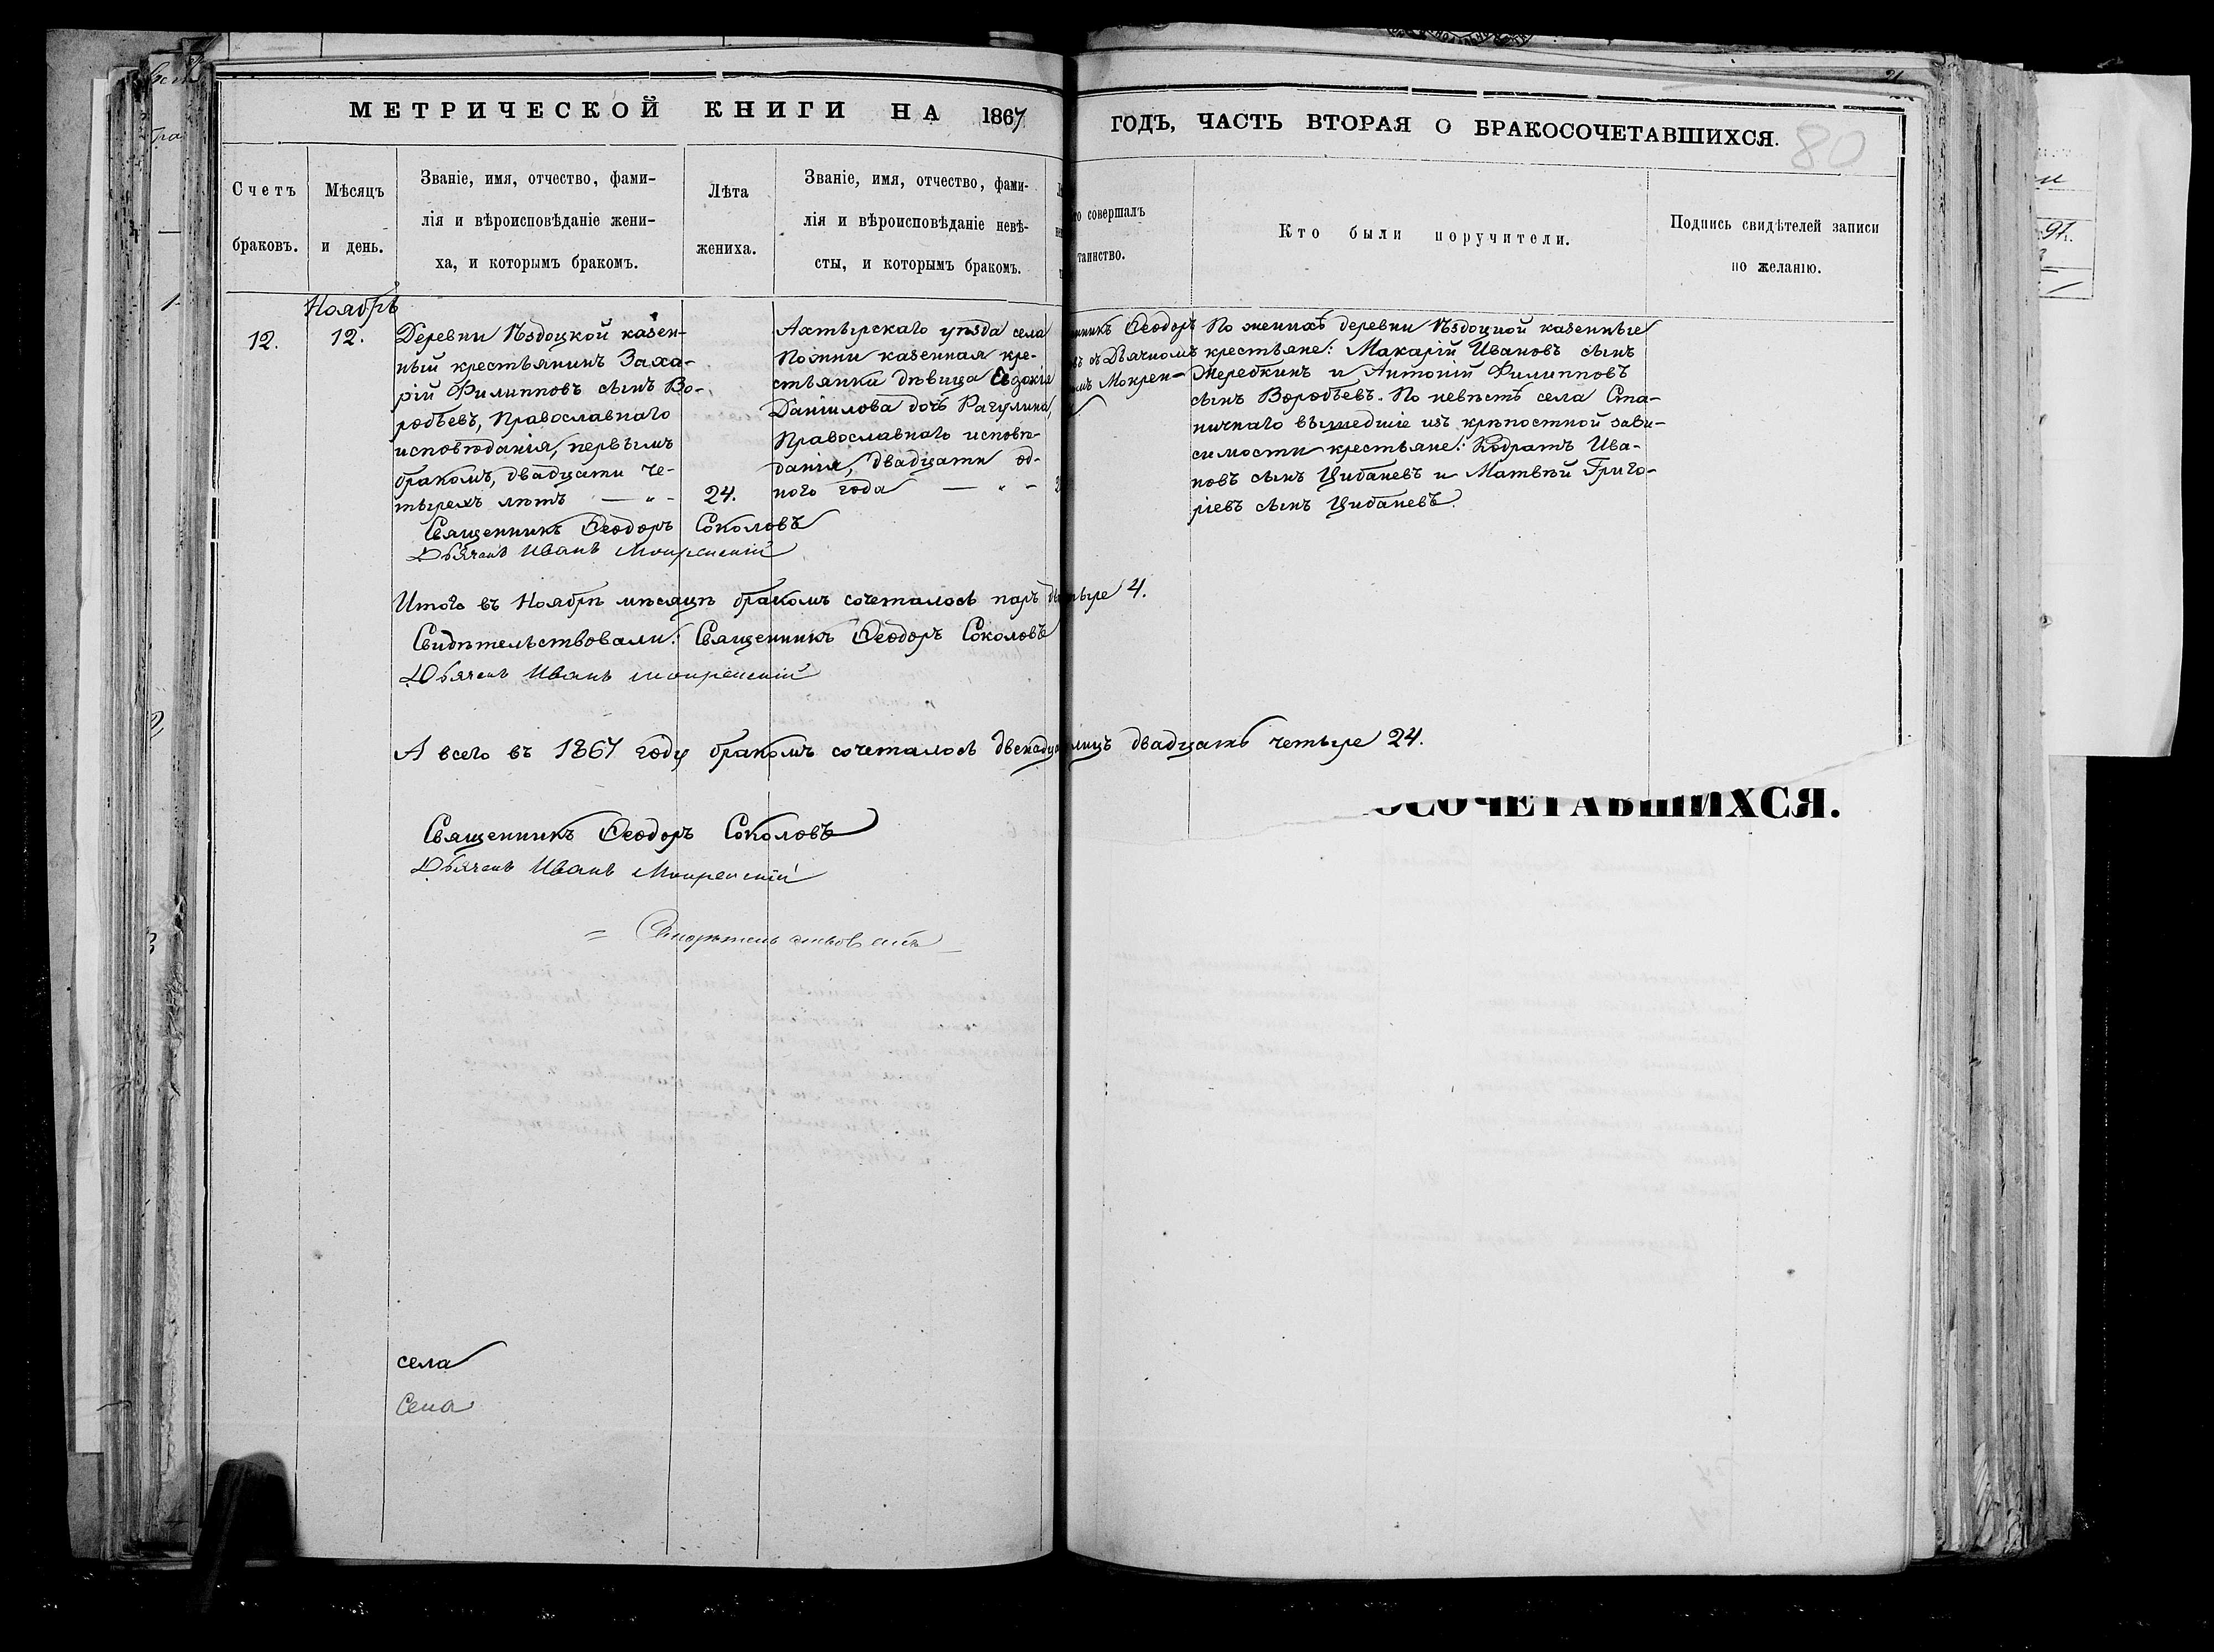 МЕТРИЧЕСКОЙ КНИГИ НА 1867
ГОДЪ, ЧАСТЬ ВТОРАЯ О БРАКОСОЧЕТАВШИХСЯ.
80
Счетъ
браковъ.
Мѣсяцъ
и день.
Званіе, имя, отчество, фами-
лія и вѣроисповѣданіе жени-
ха, и которымъ бракомъ.
Лѣта
жениха.
Званіе, имя, отчество, фами-
лія и вѣроисповѣданіе невѣ-
сты, и которымъ бракомъ.
то совершалъ
таинство.
Кто были поручители.
Подпись свидѣтелей записи
по желанію.
Ноябрь
12.
12.
Деревни Ѣздоцкой казен-
ный крестьянинъ Заха-
рій Филипповъ сынъ Во-
робьевъ, Православнаго
исповѣданія, первымъ
бракомъ, двадцати че-
тырехъ лѣтъ — „ -
24.
Ахтырскаго уѣзда села
казенная кре-
стьянка дѣвица
Даніилова дочь Рагулина,
Православнаго исповѣ-
данія, двадцати од-
ного года — „ -
нникъ Ѳеодоръ
въ съ Дьячкомъ
Мокрен-
По женихѣ деревни Ѣздоцкой казенные
крестьяне: Макарій Ивановъ сынъ
Жеребкинъ и Антоній Филипповъ
сынъ Воробьевъ. По невѣстѣ села Ста-
ничнаго вышедшіе изъ крѣпостной зави-
симости крестьяне: Кодратъ Ива-
новъ сынъ Цибаневъ и Матвѣй Григо-
ріевъ сынъ Цибаневъ.
Священникъ Ѳеодоръ Соколовъ
Дьячекъ Иванъ Мокренскій
Итого въ Ноябрѣ мѣсяцѣ бракомъ сочеталось паръ 4.
Свидѣтельствовали: Священникъ Ѳеодоръ Соколовъ
Дьячекъ Иванъ Мокренскій
А всего въ 1867 году бракомъ сочеталось лицъ двадцать четыре 24.
ОСОЧЕТАВШИХСЯ.
Священникъ Ѳеодоръ Соколовъ
Дьячекъ Иванъ Мокренскій
села
Села